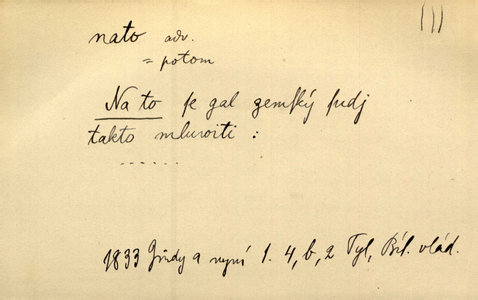 nato adv.
= potom
Na to ſe gal zemſký ſudj
takto mluwiti :
......
1833 Gindy a nynj 1. 4, b, 2 Tyl, Bít. vlád.